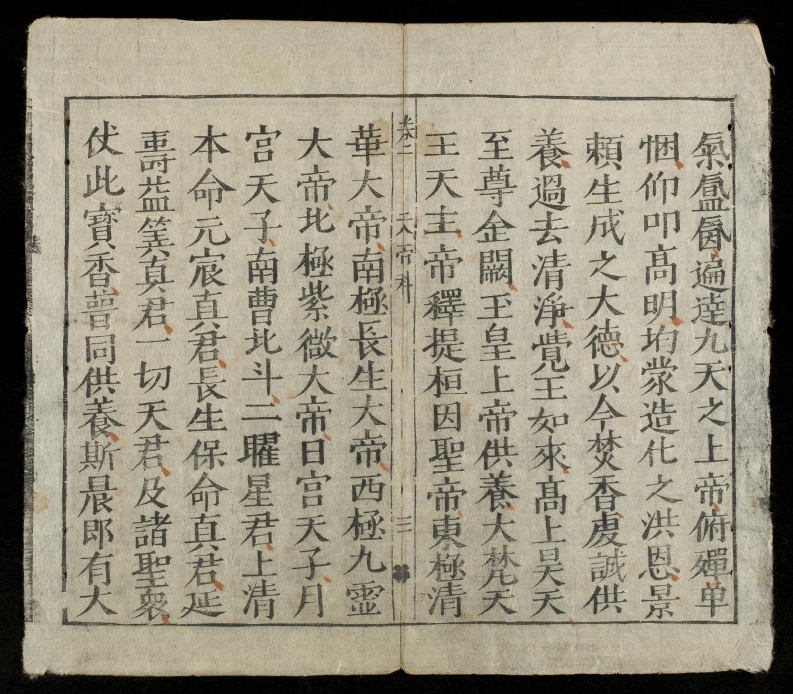 氣氳氤遍達九天之上帝俯殫卑
悃仰叩髙明均蒙造化之洪恩景
頼生成之大德以今焚香虔誠供
養過去清淨覺王如來髙上昊天
至尊金闕玉皇上帝供養大梵天
王天主帝釋提桓因聖帝東極清
卷二 天帝科 三
華大帝南極長生大帝西極九霊
大帝北極紫微大帝日宮天子月
宮天子南曹北斗二曜星君上清
本命元宸真君長生保命真君延
壽益筭真君一切天君及諸聖衆
仗此寶香普同供養斯晨郎有大